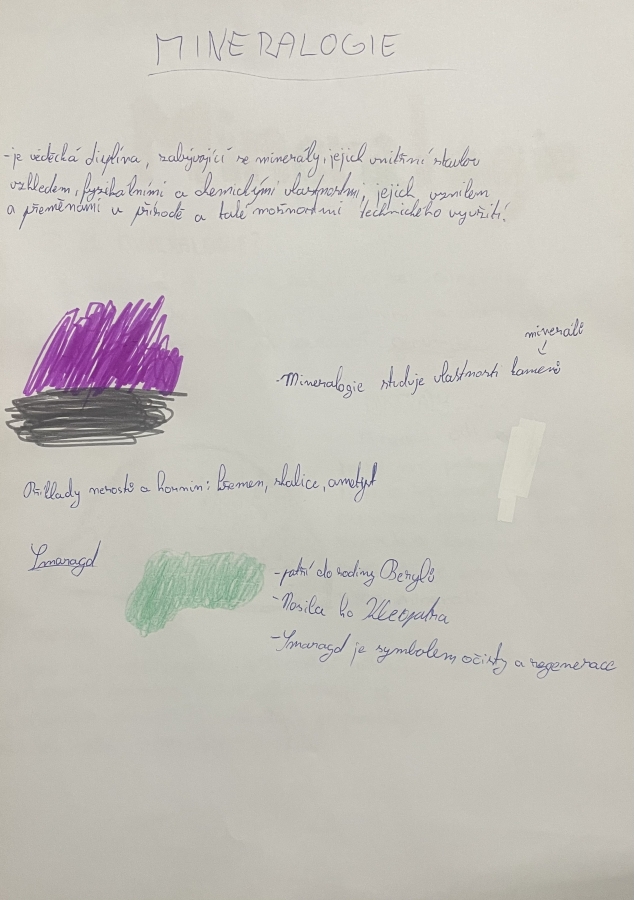 MINERALOGIE
- je vědecká diplína, zabývající se minerály, jejich vnitřní stavbou
vzhledem, fyzikálními a chemickými vlastnostmi, jejich vznikem
a přeměnami v přírodě a také možnostmi technického využití.
minerálů
- Mineralogie studuje vlastnosti kamenů
Příklady nerostů a hornin: křemen, skalice, ametyst
Smaragd
- patří do rodiny Berylů
- Nosila ho Kleopatra
- Smaragd je symbolem očisty a regenerace